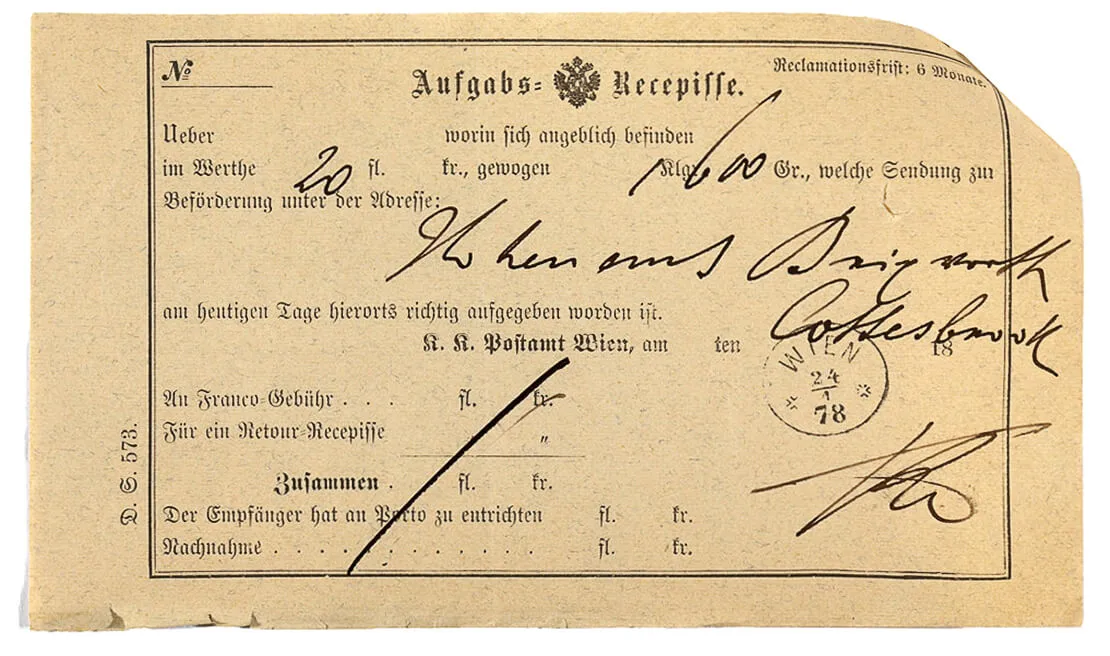 №
Aufgabs- Recepisse.
Reclamationsfrist: 6 Monate.
Ueber worin sich angeblich befinden
im Werthe 20 fl. kr., gewogen Klgr. 600 Gr., welche Sendung zur
Beförderung unter der Adresse:
Brixworth
am heutigen Tage hierorts richtig aufgegeben worden ist.
Cottesbrook
K. K. Postamt Wien, am ten 18
WIEN
24
1
78
An Franco-Gebühr . . . fl. kr.
Für ein Retour-Recepisse "
Zusammen . fl. kr.
Der Empfänger hat an Porto zu entrichten fl. kr.
Nachnahme . . . . . . . . . . . . fl. kr.
D. S. 573.